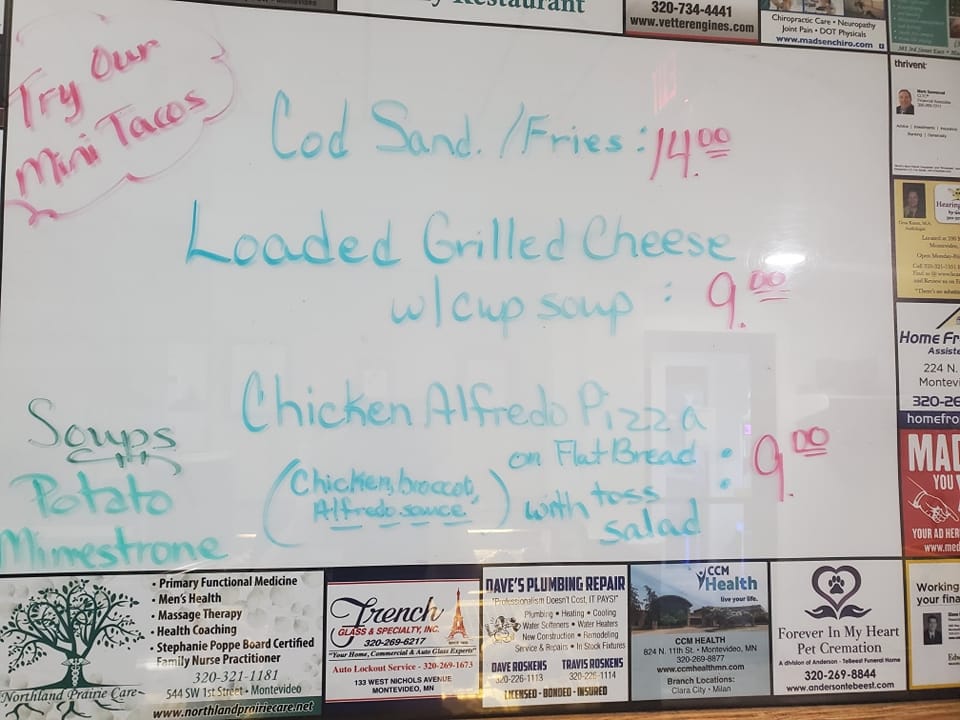 Restaurant
320-734-4441
www.vetterengines.com
Chiropractic Care • Neuropathy
Joint Pain • DOT Physicals
www.madsenchiro.com
thrivent
Try Our
Mini Tacos
Cod Sand. / Fries : 14.00
Loaded Grilled Cheese
w/ cup soup : 9.00
Chicken Alfredo Pizza
on Flat Bread : 9.00
(Chicken, broccoli,
Alfredo sauce)
with toss
salad
Soups
Potato
Mimestrone
Hearing
Home Fr
Assiste
224 N.
Montevi
320-26
homefro
MAD
YOU
YOUR AD HER
www.med
• Primary Functional Medicine
• Men's Health
• Massage Therapy
• Health Coaching
• Stephanie Poppe Board Certified
Family Nurse Practitioner
320-321-1181
544 SW 1st Street • Montevideo
www.northlandprairiecare.net
Northland Prairie Care
French
GLASS & SPECIALTY, INC.
320-269-6217
"Your Home, Commercial & Auto Glass Experts"
Auto Lockout Service - 320-269-1673
133 WEST NICHOLS AVENUE
MONTEVIDEO, MN
DAVE'S PLUMBING REPAIR
"Professionalism Doesn't Cost, IT PAYS!"
Plumbing • Heating • Cooling
Water Softeners • Water Heaters
New Construction • Remodeling
Service & Repairs • In Stock Fixtures
DAVE ROSKENS
320-226-1113
TRAVIS ROSKENS
320-226-1114
LICENSED - BONDED - INSURED
CCM
Health
live your life.
CCM HEALTH
824 N. 11th St. • Montevideo, MN
320-269-8877
www.ccmhealthmn.com
Branch Locations:
Clara City • Milan
Forever In My Heart
Pet Cremation
A division of Anderson - TeBeest Funeral Home
320-269-8844
www.andersontebeest.com
Working
your fina